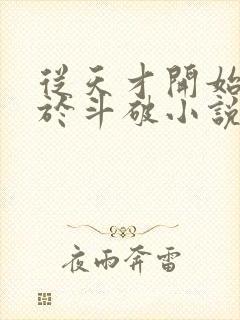 從天才開始
於斗破小説
夜雨奔雷